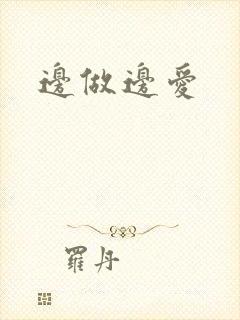 邊做邊愛
羅丹